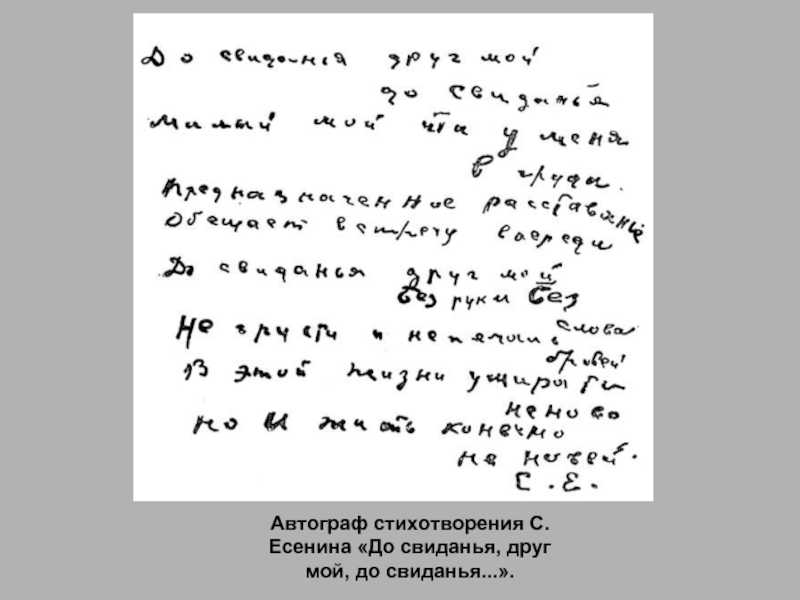 До свиданья друг мой
до свиданья
Милый мой ты у меня
в груди.
Предназначенное расставанье
Обещает встречу впереди
До свиданья друг мой
без руки без
слова
Не грусти и не печаль
бровей
В этой жизни умирать
не ново
но и жить конечно
не новей.
С. Е.
Автограф стихотворения С.
Есенина «До свиданья, друг
мой, до свиданья...».